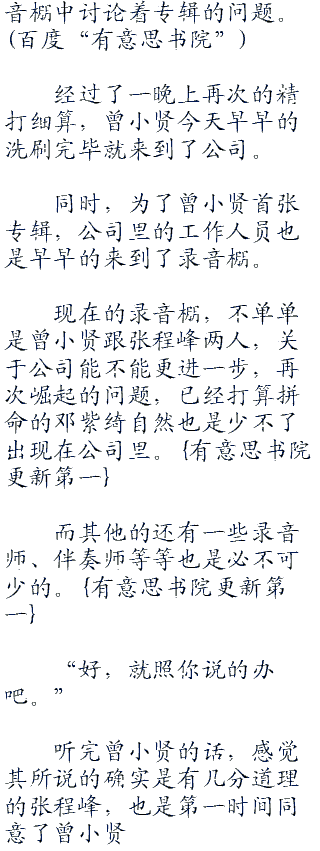 音棚中讨论着专辑的问题。
(百度“有意思书院”)
经过了一晚上再次的精
打细算，曾小贤今天早早的
洗刷完毕就来到了公司。
同时，为了曾小贤首张
专辑，公司里的工作人员也
是早早的来到了录音棚。
现在的录音棚，不单单
是曾小贤跟张程峰两人，关
于公司能不能更进一步，再
次崛起的问题，已经打算拼
命的邓紫绮自然也是少不了
出现在公司里。{有意思书院
更新第一}
而其他的还有一些录音
师、伴奏师等等也是必不可
少的。{有意思书院更新第
一}
“好，就照你说的办
吧。”
听完曾小贤的话，感觉
其所说的确实是有几分道理
的张程峰，也是第一时间同
意了曾小贤